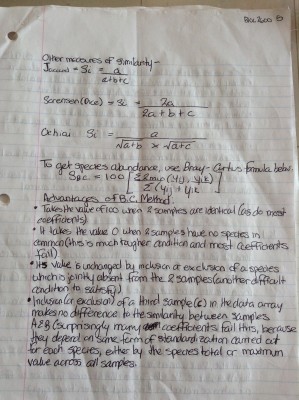 BIO 3600
Other measures of similarity -
Jaccard = Si = a / a+b+c
Sorensen (Dice) = Si = 2a / 2a+b+c
Ochiai Si = a / √a+b × √a+c
To get species abundance, use Bray-Curtis formula below.
Advantages of B.C. Method
• Takes the value of 100 when 2 samples are identical (as do most
coefficients)
• It takes the value 0 when 2 samples have no species in
common (this is much tougher condition and most coefficients
fail)
• Its value is unchanged by inclusion or exclusion of a species
which is jointly absent from the 2 samples (another difficult
condition to satisfy).
• Inclusion (or exclusion) of a third sample (c) in the data array
makes no difference to the similarity between samples
A & B (surprisingly many coefficients fail this, because
they depend on some form of standardization carried out
for each species, either by the species total or maximum
value across all samples.